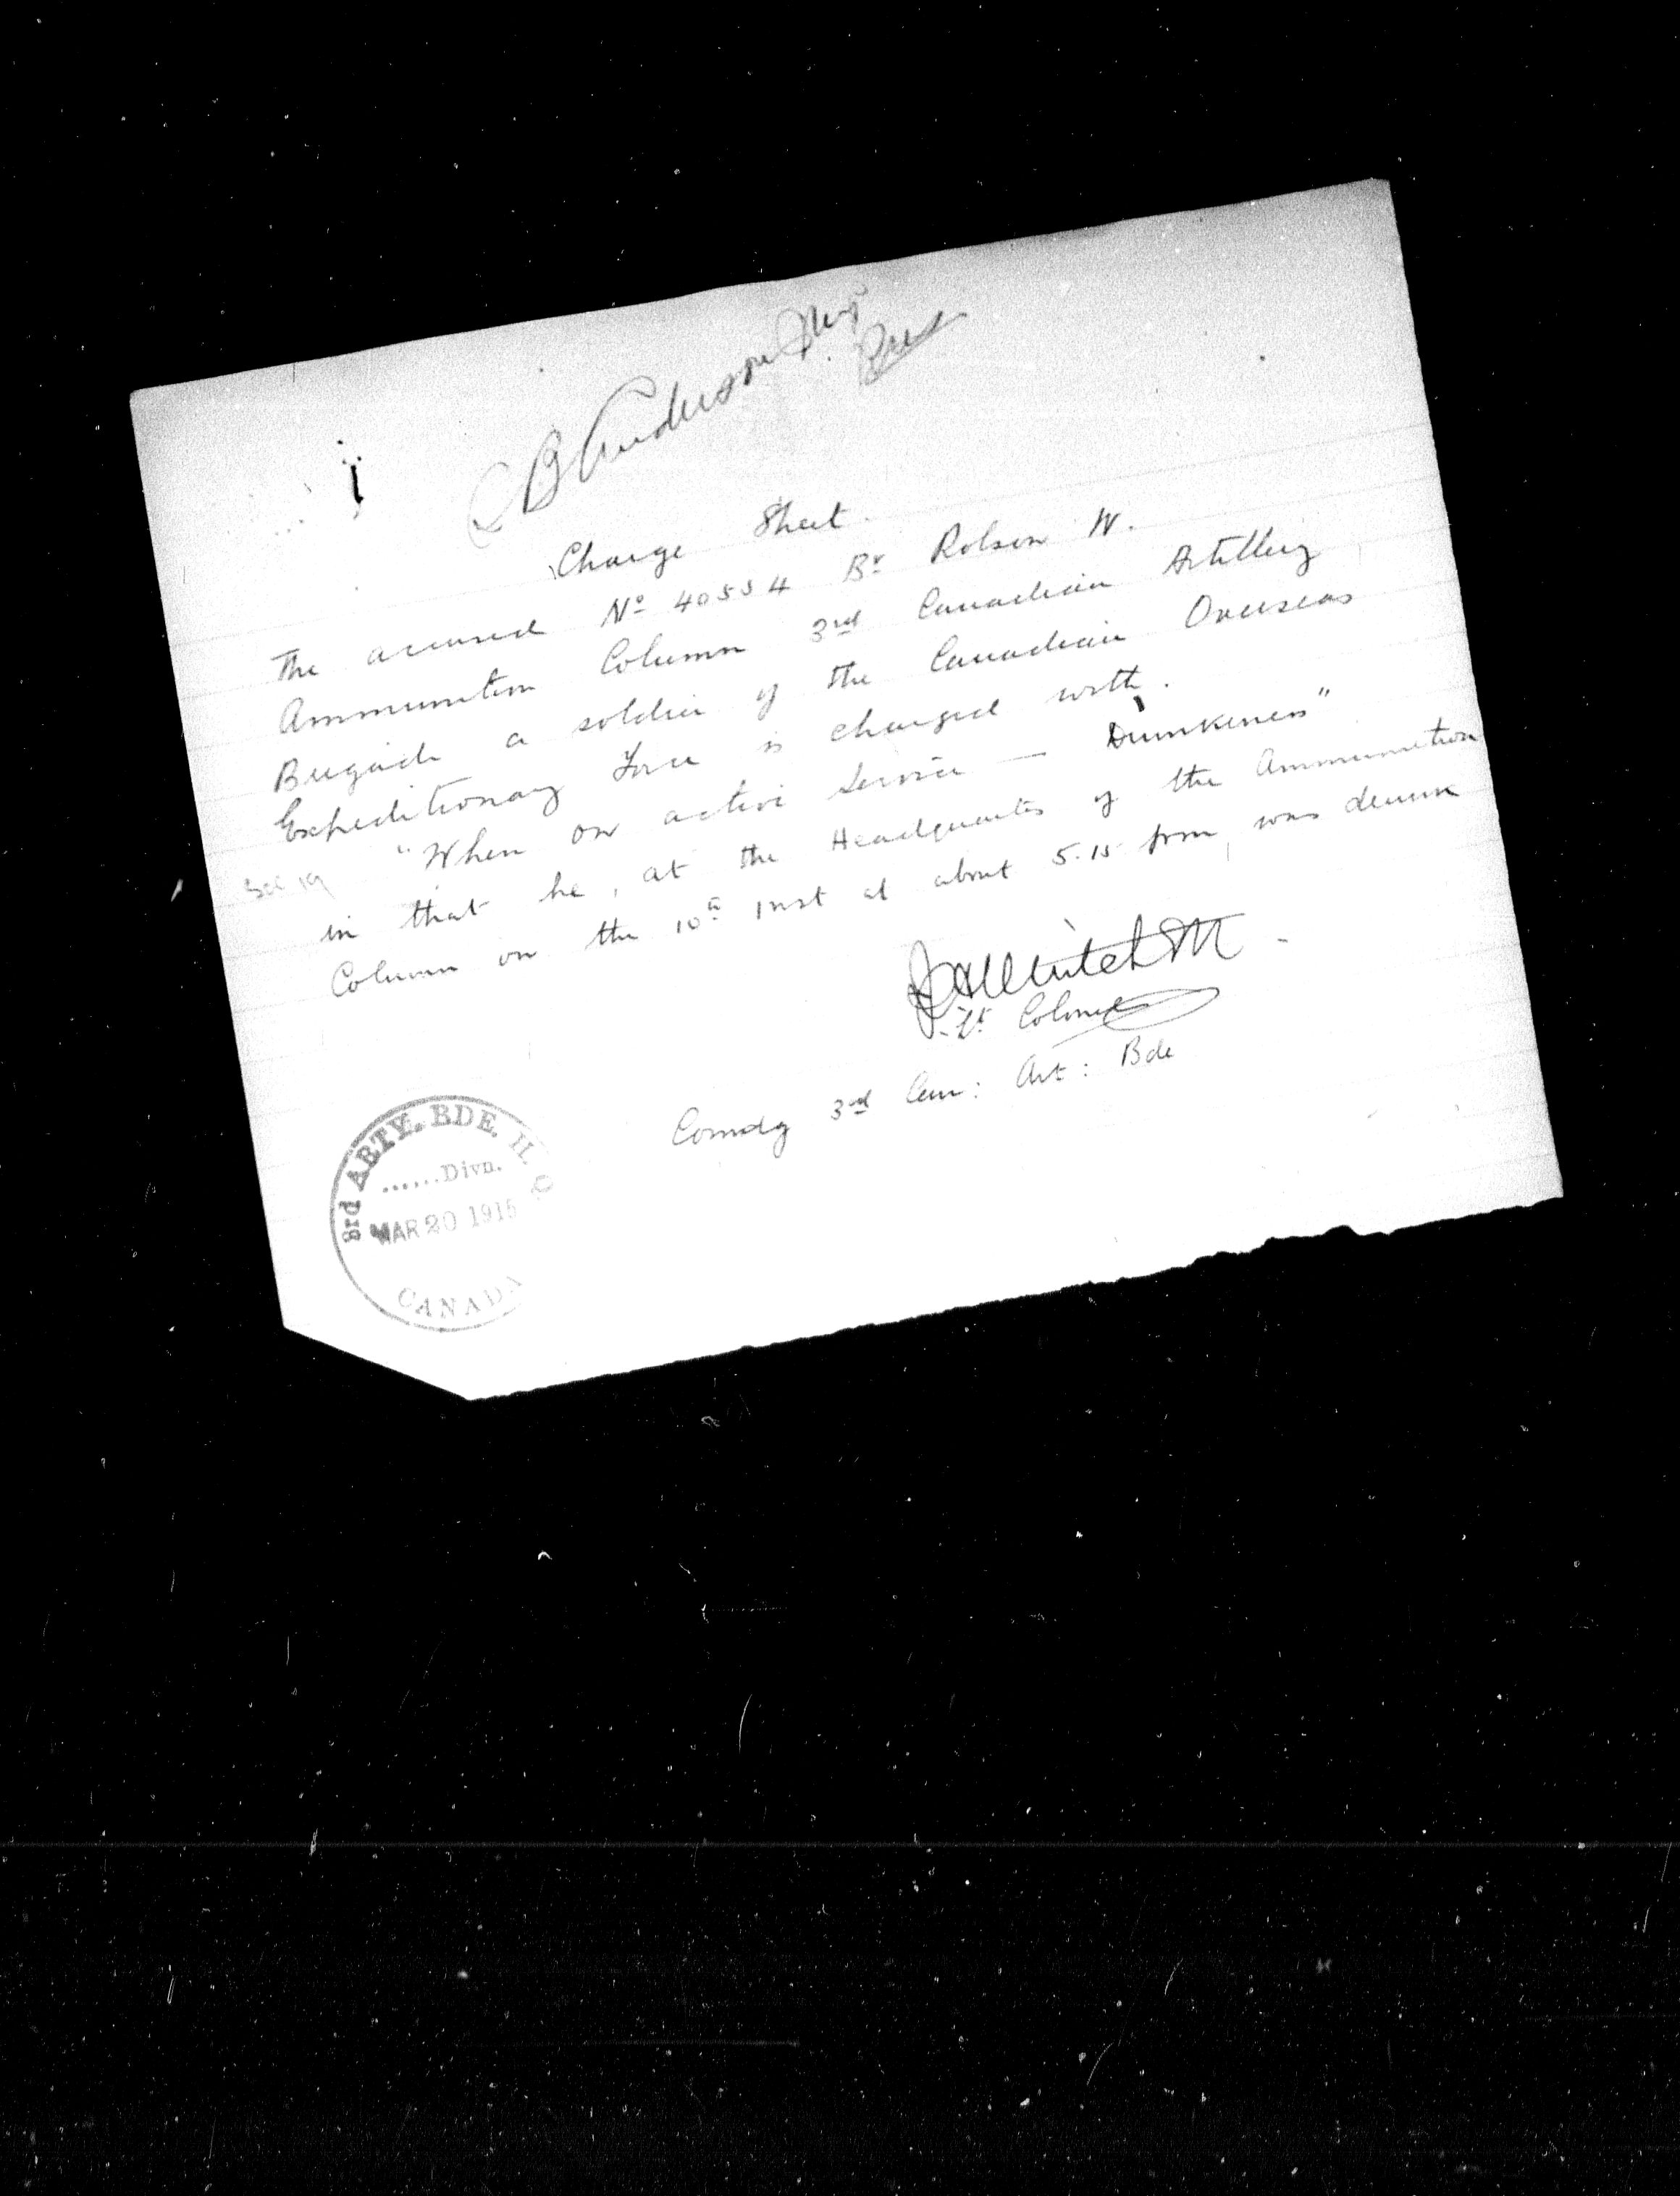 B Anderson Maj
Pres
Charge Sheet.
The accused No 40554 Br Robson W.
Ammunition Column 3rd Canadian Artillery
Brigade a soldier of the Canadian Overseas
Expeditionary Force is charged with.
Sec 19 "When on active service — Drunkeness"
in that he, at the Headquarters of the Ammunition
Column on the 10th inst at about 5.15 pm, was drunk
Lt Colonel
Comdg 3rd Can: Art: Bde
3rd ARTY. BDE. H.Q.
......Divn.
MAR 20 1915
CANADA